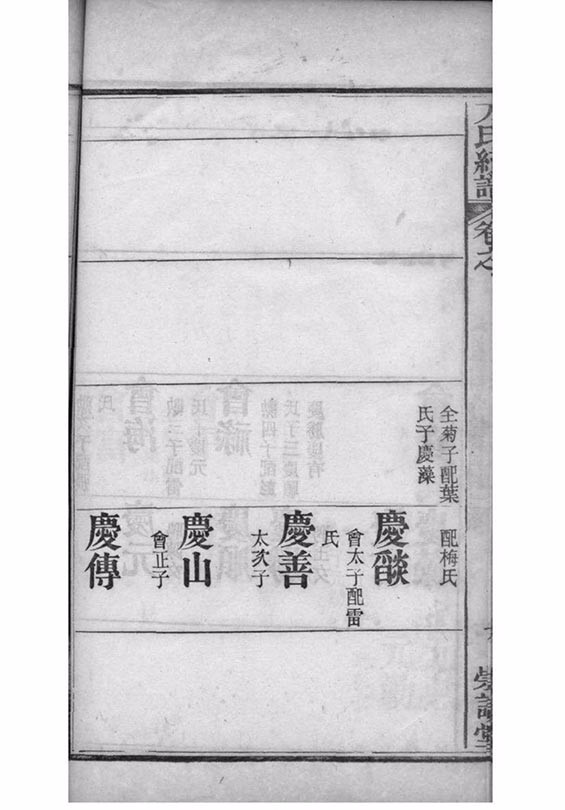 氏續譜 卷之
全菊子配葉
氏子慶藻
配梅氏
慶燄
會太子配雷
氏
慶善
太次子
慶山
會正子
慶傳